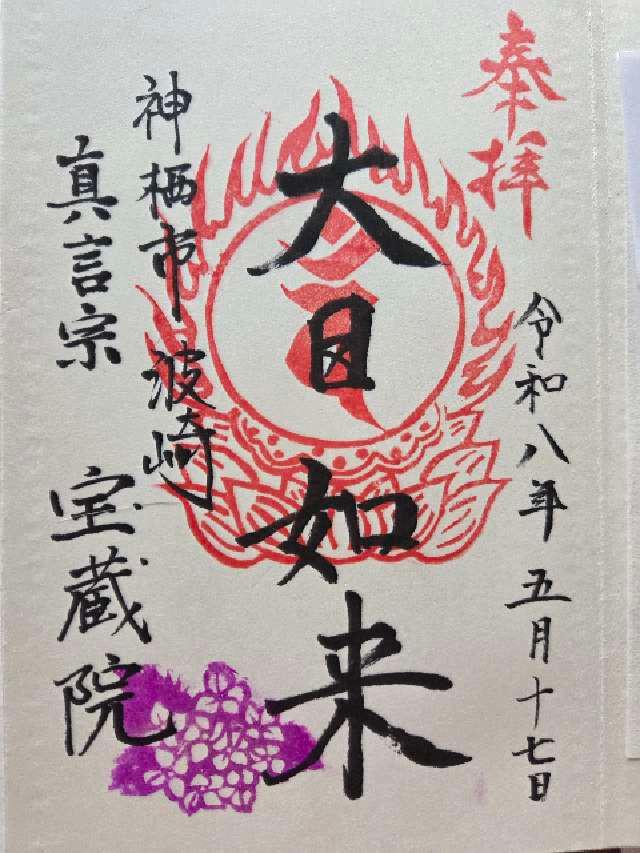 奉拝
令和八年 五月十七日
大日如来
神栖市 波崎
真言宗 宝蔵院